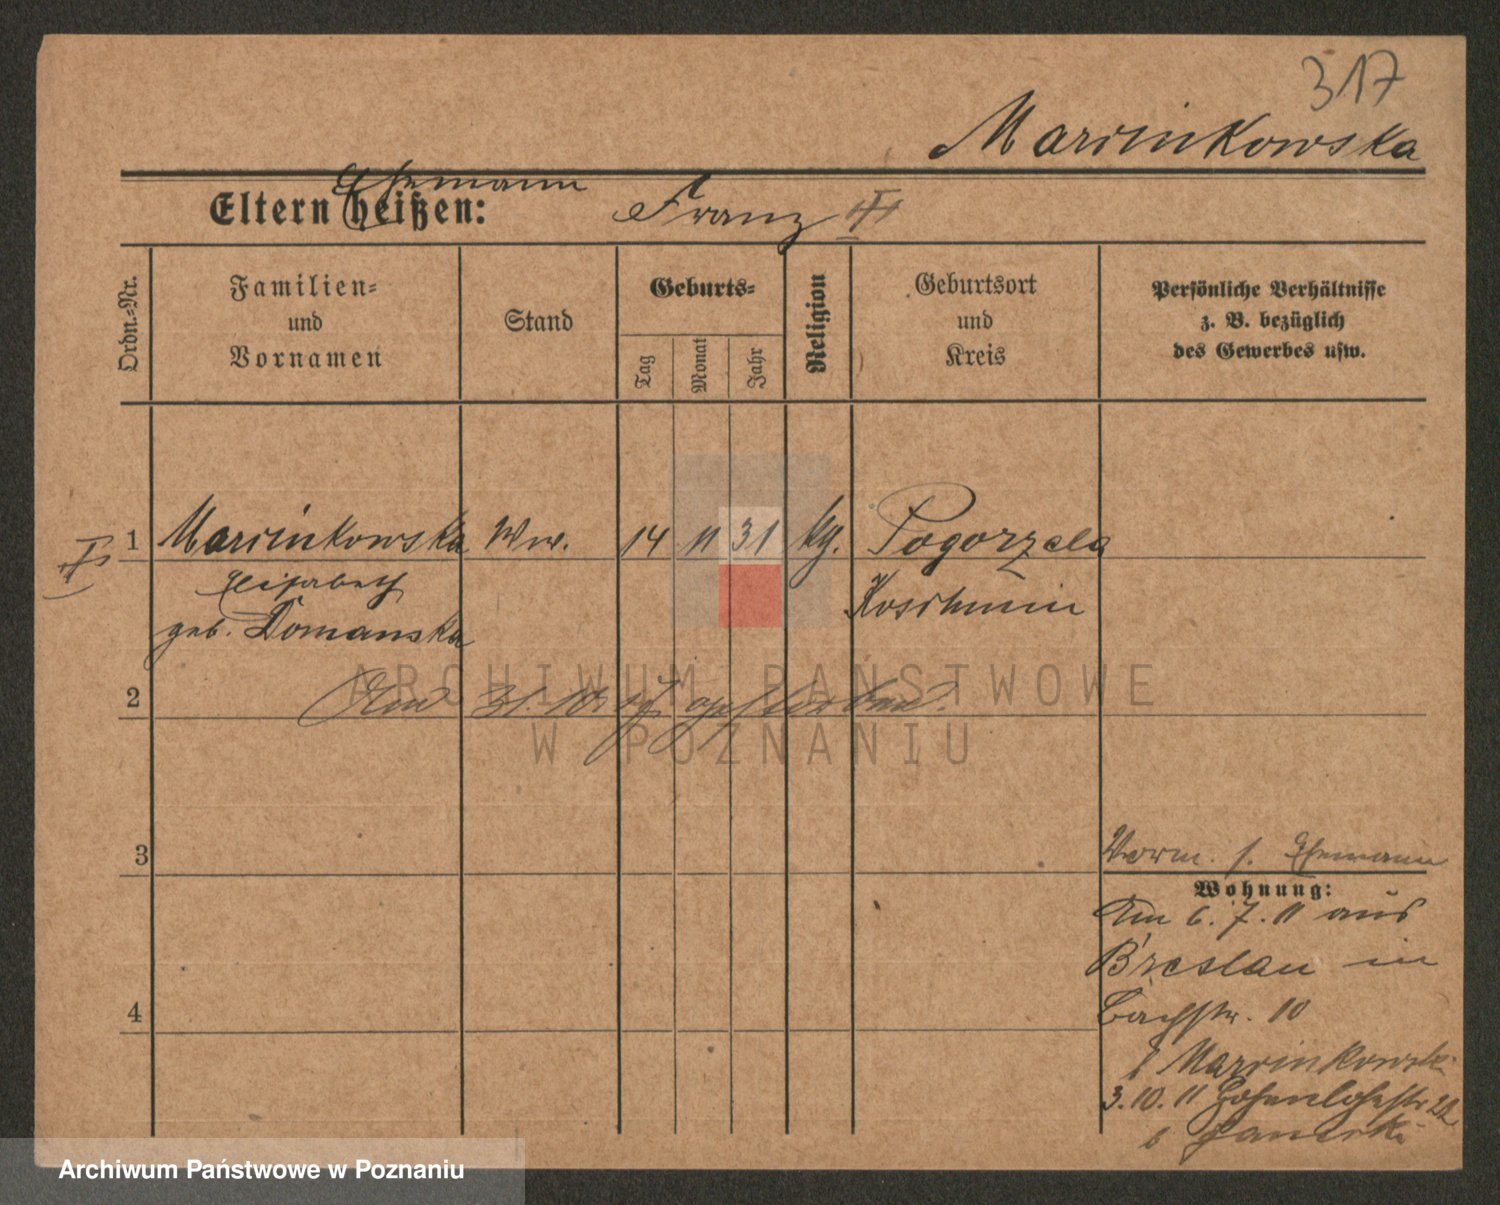 317
Marcinkowska
Ehemann
Eltern heißen: Franz
Ordn.-Nr.
Familien-
und
Vornamen
Stand
Geburts-
Tag
Monat
Jahr
Religion
Geburtsort
und
Kreis
Persönliche Verhältnisse
z. B. bezüglich
des Gewerbes usw.
1 Marcinkowska Ww. 14 11 31 kg. Pogorzela
Elisabeth Koschmin
geb. Domanska
2 Am 31. 10. gestorben.
3
Verm. s. Ehemann
Wohnung:
Am 6. 7. 11 aus
Breslau in
Bachstr. 10
4
b Marcinkowski
3. 10. 11 Hohenlohestr
b
ARCHIWUM PAŃSTWOWE
W POZNANIU
Archiwum Państwowe w Poznaniu